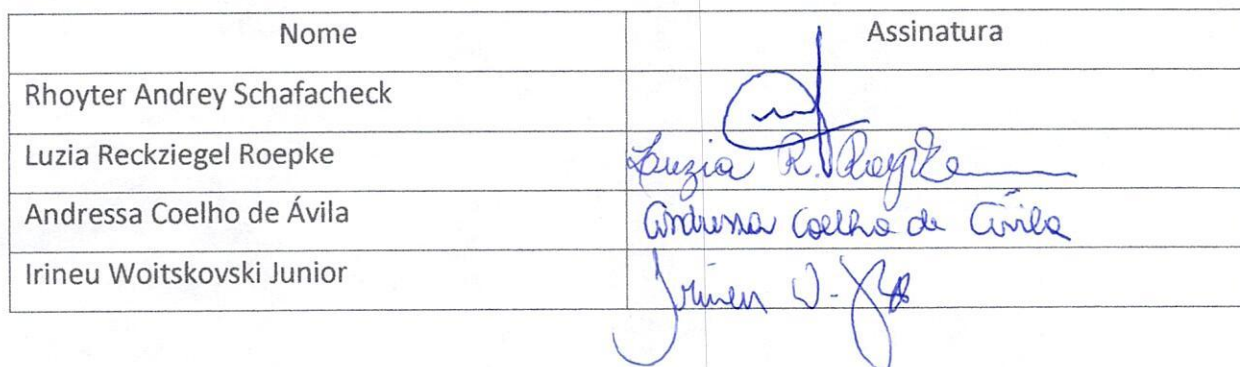 Nome Assinatura
Rhoyter Andrey Schafacheck
Luzia Reckziegel Roepke Luzia R. Roepke
Andressa Coelho de Ávila Andressa Coelho de Ávila
Irineu Woitskovski Junior Irineu W.